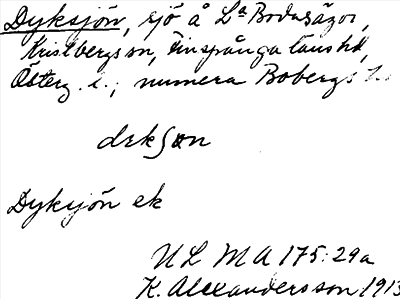 Dyksjön, sjö å Lª Bodaságor,
Kristbergs sn, Finspånga länshd,
Österg. l.; numera Bobergs h.
Dyksjön ek
ULMA 175:29a
K. Alexandersson 1913